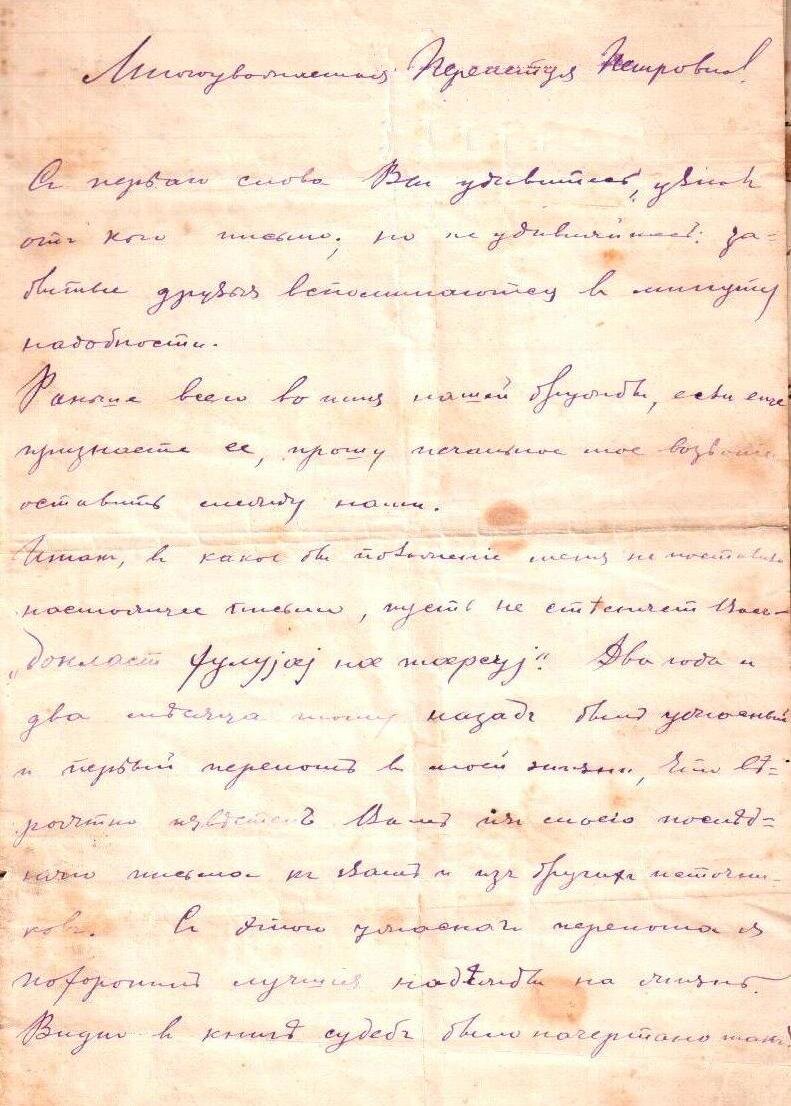 Многоуважаемая Перепетуя Петровна!
Съ перваго слова Вы удивитесь, узнавъ
отъ кого письмо; но не удивляйтесь: за-
бытые друзья вспоминаются въ минуту
надобности.
Раньше всего во имя нашей дружбы, если еще
признаете ее, прошу печальное мое
оставить между нами.
Итакъ, въ какое бы положеніе меня не поставило
настоящее письмо, пусть не стѣсняетъ Васъ
Два года и
два мѣсяца тому назадъ былъ ужасный
и первый переломъ въ моей жизни, что вѣ-
роятно извѣстенъ Вамъ изъ моего послѣд-
няго письма къ Вамъ и изъ другихъ источни-
ковъ. Съ этого ужаснаго перелома я
похоронилъ лучшія надежды на жизнь.
Видно въ книгѣ судебъ было начертано такъ!